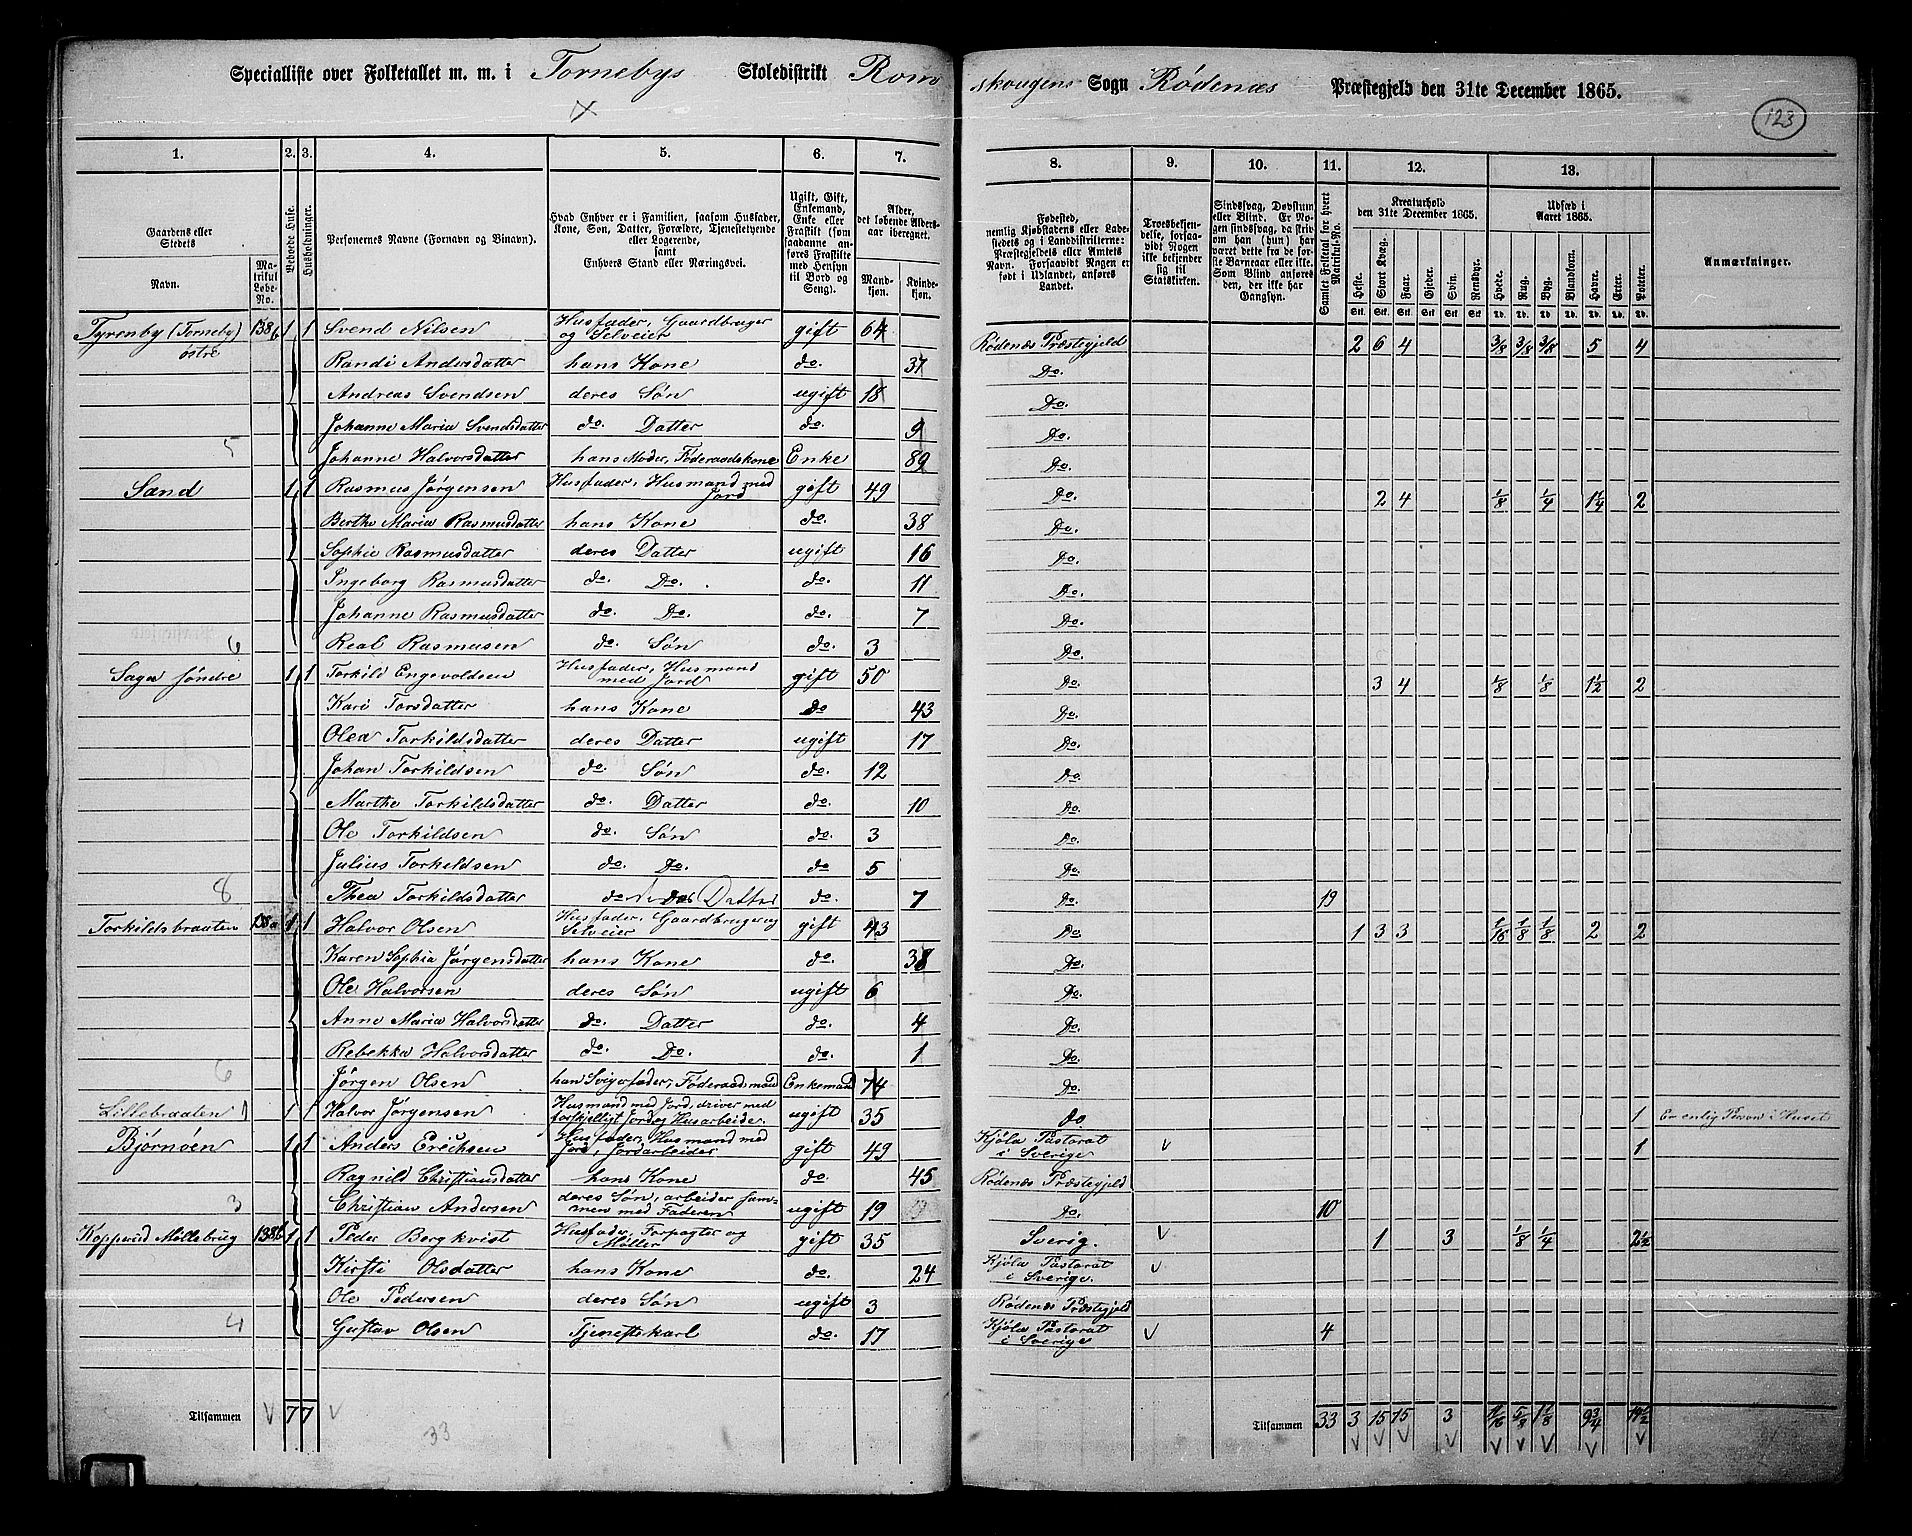 Specialliste over Folketallet m. m. i Tornebys Skoledistrikt Romskougens Sogn Rødenæs Præstegjeld den 31te December 1865.
123
1. 2. 3. 4. 5. 6. 7. 8. 9. 10. 11. 12. 13.
Gaardens eller Stedets
Navn.
Matrikul Løbe-No.
Beboede Huse.
Husholdninger.
Personernes Navne (Fornavn og Binavn).
Hvad Enhver er i Familien, saasom Husfader, Kone, Søn, Datter, Forældre, Tjenestetyende eller Logerende, samt Enhvers Stand eller Næringsvei.
Ugift, Gift, Enkemand, Enke eller Fraskilt (som saadanne anføres Fraskilte med Hensyn til Bord og Seng).
Alder, det løbende Aldersaar iberegnet.
Mandkjøn. Kvindekjøn.
Fødested, nemlig Kjøbstadens eller Ladestedets og i Landdistrikterne: Præstegjeldets eller Amtets Navn. Forsaavidt Nogen er født i Udlandet, anføres Landet.
Troesbekjendelse, forsaavidt Nogen ikke bekjender sig til Statskirken.
Sindssvag, Døvstum eller Blind. Er Nogen sindssvag, da skrives om han (hun) har været dette fra de første Barneaar eller ikke. Som Blind anføres den, der ikke har Gangsyn.
Samlet Folketal for hvert Matrikul-No.
Kreaturhold den 31te December 1865.
Heste. Stort Kvæg. Faar. Gjeder. Svin. Rensdyr.
Stk. Stk. Stk. Stk. Stk. Stk.
Udsæd i Aaret 1865.
Hvede. Rug. Byg. Blandkorn. Havre. Erter. Poteter.
Td. Td. Td. Td. Td. Td. Td.
Anmærkninger.
Tyrenby (Torneby) østre 138b 1 1 Svend Nilsen Husfader, Gaardbruger og Selveier gift 64 Rødenæs Præstegjeld 2 6 4 3/8 3/8 3/8 5 4
Randi Andersdatter hans Kone do. 37 Do.
Andreas Svendsen deres Søn ugift 18 Do.
Johanne Maria Svendsdatter do. Datter do. 9 Do.
5 Johanne Halvorsdatter hans Moder, Føderaadskone Enke 89 Do.
Sand 1 1 Rasmus Jørgensen Husfader, Husmand med Jord gift 49 Do. 2 4 1/8 1/4 1 1/4 2
Berthe Maria Rasmusdatter hans Kone do. 38 Do.
Sophie Rasmusdatter deres Datter ugift 16 Do.
Ingeborg Rasmusdatter do. Do. do. 11 Do.
Johanne Rasmusdatter do. Do. do. 7 Do.
6 Real Rasmusen do. Søn do. 3 Do.
Saga søndre 1 1 Torkild Engevoldsen Husfader, Husmand med Jord gift 50 Do. 3 4 1/8 1/8 1 1/2 2
Kari Torsdatter hans Kone do 43 Do.
Olea Torkildsdatter deres Datter ugift 17 Do.
Johan Torkildsen do. Søn do. 12 Do.
Marthe Torkildsdatter do. Datter do. 10 Do.
Ole Torkildsen do. Søn do. 3 Do.
Julius Torkildsen do. Do. do 5 Do.
8 Thea Torkildsdatter do Datter do. 7 Do. 19
Torkildsbraaten 138a 1 1 Halvor Olsen Husfader, Gaardbruger og Selveier gift 43 Do. 1 3 3 1/16 1/8 1/8 2 2
Karen Sophia Jørgensdatter hans Kone do. 38 Do.
Ole Halvorsen deres Søn ugift 6 Do.
Anne Maria Halvorsdatter do. Datter do. 4 Do.
Rebekka Halvorsdatter do. Do. do. 1 Do.
6 Jørgen Olsen han Svigerfader, Føderaadsmand Enkemand 74 Do.
Lillebraaten 1 1 1 Halvor Jørgensen Husmand med Jord, driver med forskjelligt Jord og Husarbeide. ugift 35 do 1 Er enlig Person i Huset
Bjørnøen 1 1 Anders Erichsen Husfader, Husmand med Jord, Jordarbeider gift 49 Kjøla Pastorat i Sverige V 1
Ragnild Christiansdatter hans Kone do. 45 Rødenæs Præstegjeld
3 Christian Andersen deres Søn, arbeider sammen med Faderen ugift 19 do. 10
Kopperud Møllebrug 138b 1 1 Peder Bergkvist Husfader, Forpagter og Møller gift 35 Sverig. V 1 3 1/8 1/4 2 1/2
Kirsti Olsdatter hans Kone do. 24 Kjøla Pastorat i Sverige. V
Ole Pedersen deres Søn ugift 3 Rødenæs Præstegjeld
4 Gustav Olsen Tjenestekarl do. 17 Kjøla Pastorat i Sverige V 4
Tilsammen V 7 7 V Tilsammen 33 3 15 15 3 11/16 5/8 1 1/8 9 3/4 14 1/2
33 V V V V V V V V V